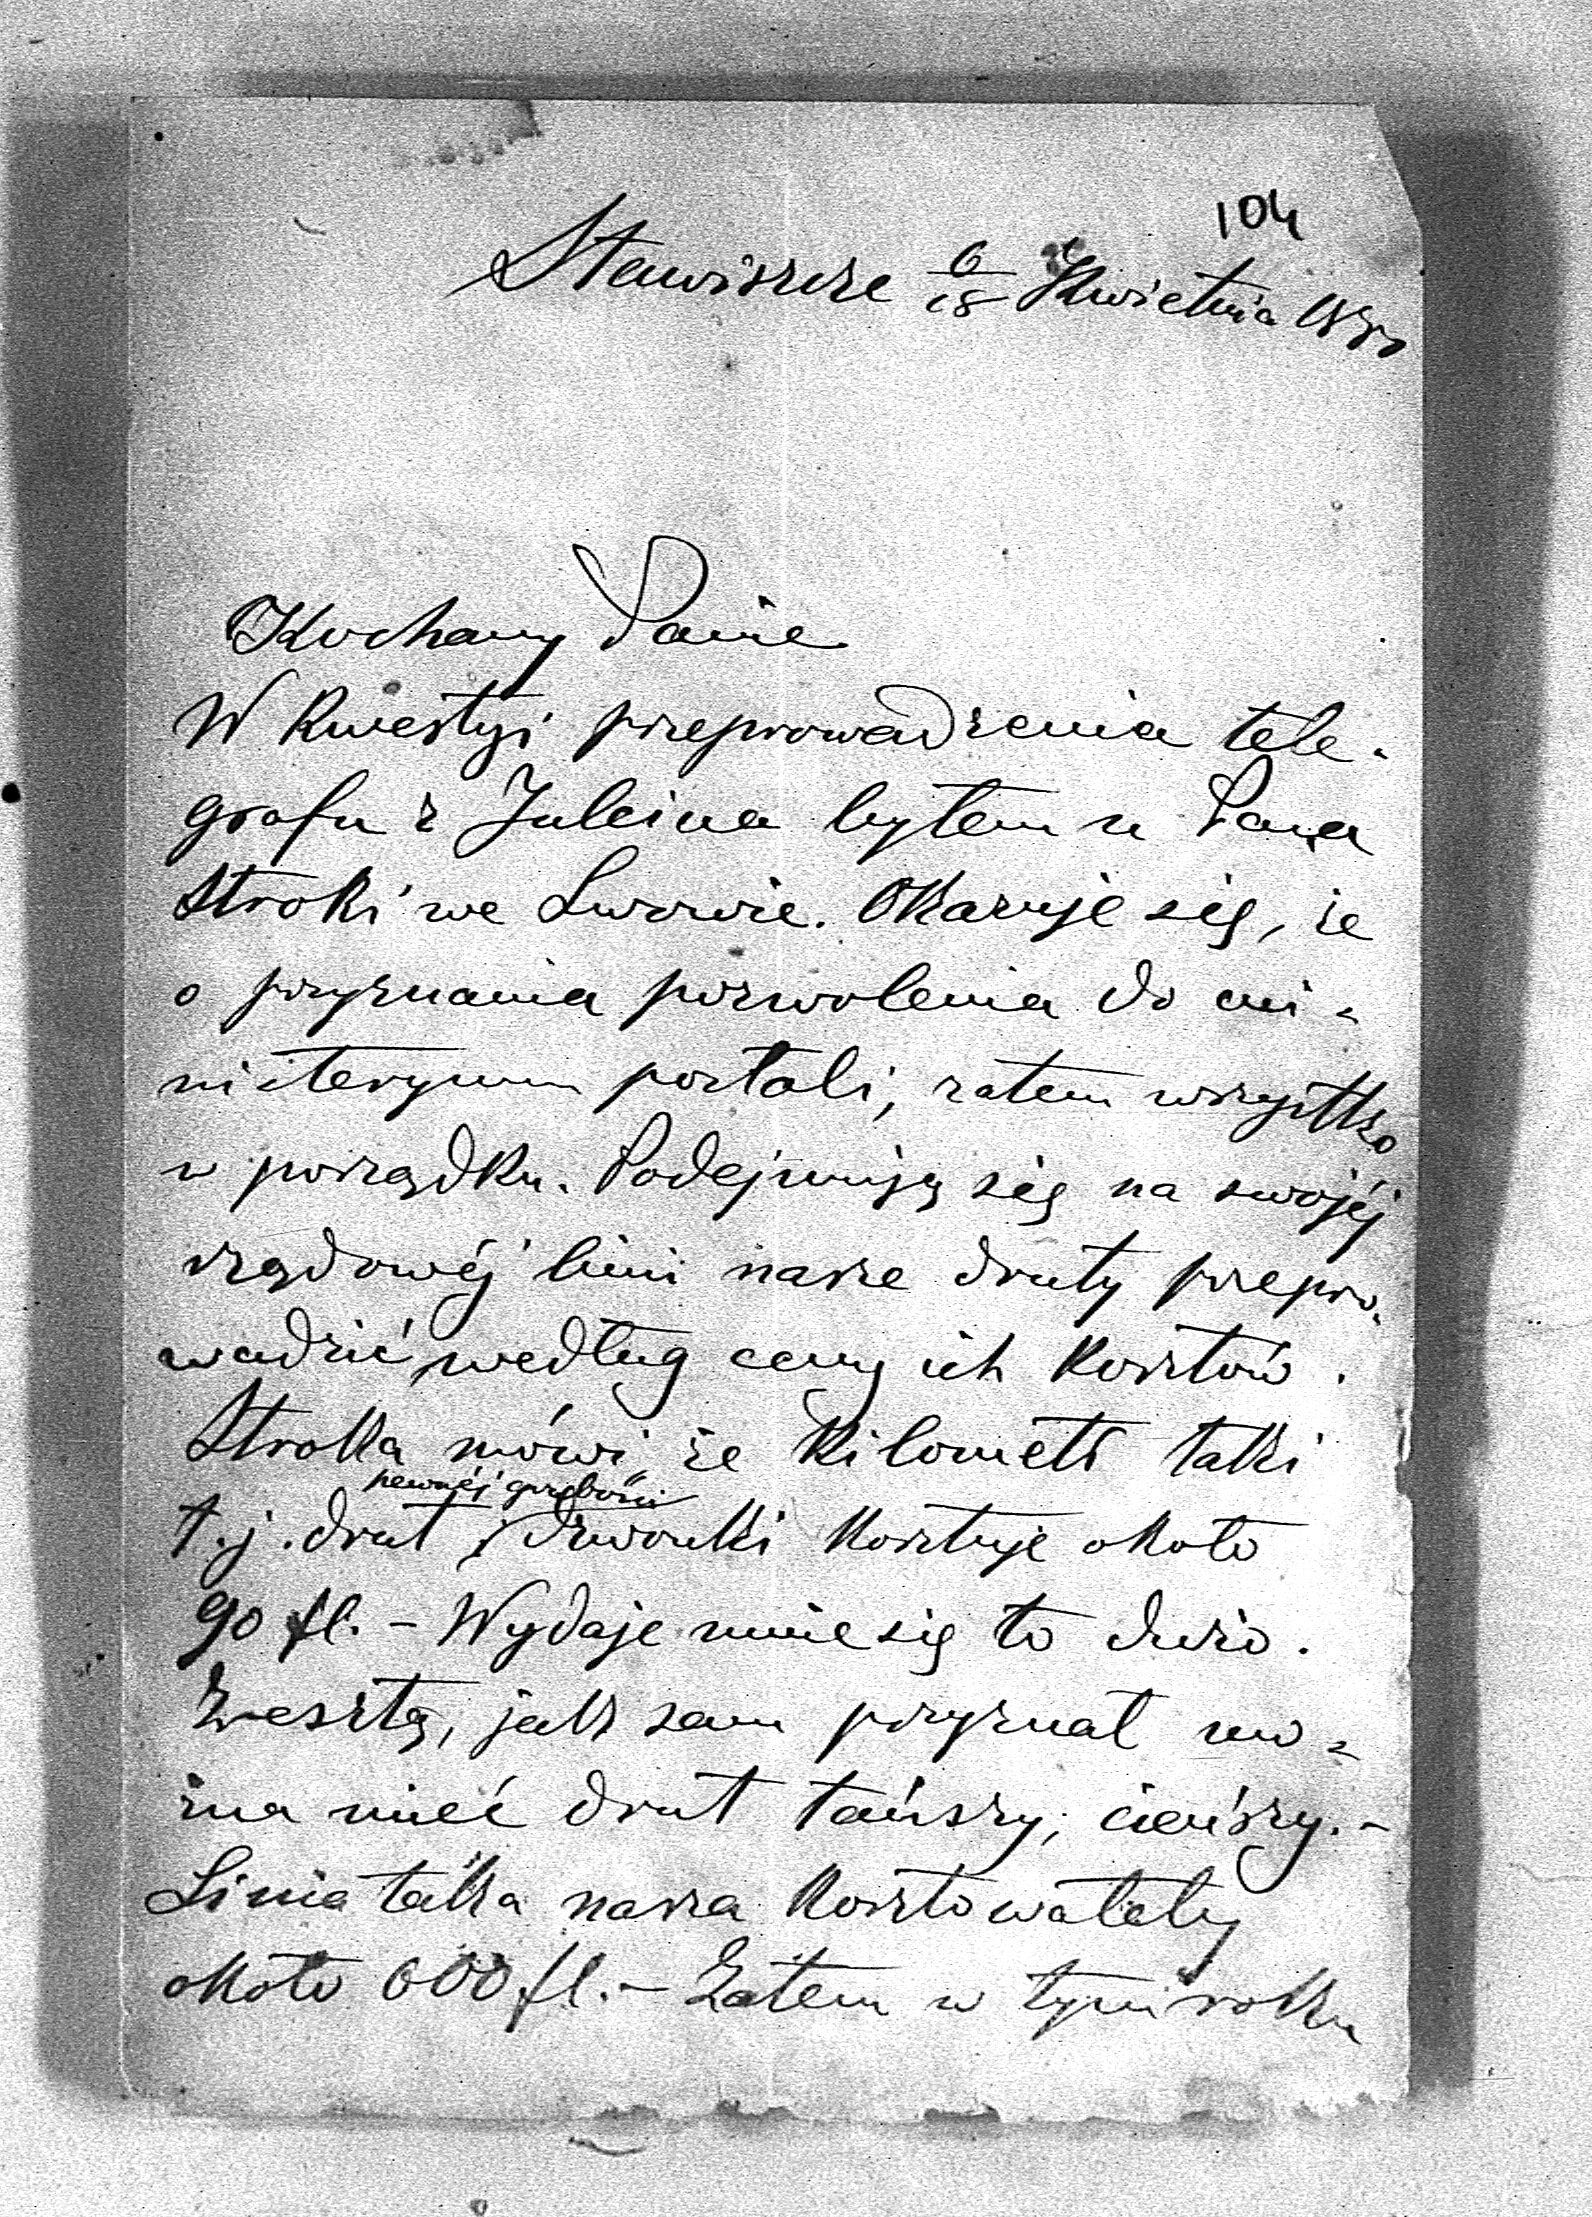 104
Stawiszcze 6/18 Kwietnia
Kochany Panie
W kwestyi przeprowadzenia tele-
grafu z Juleina byłem u Pana
Stroki we Lwowie. Okazuje się, że
o przyznania pozwolenia do mi-
nisteryum posłali, zatem wszystko
w porządku. Podejmują się na swojéj
rządowéj linii nasze druty przepro-
wadzić według ceny ich kosztów.
Stroka mówi że kilometr taki
pewnéj grubości
t.j. drut i dzwonki kosztuje około
90 fl. – Wydaje mnie się to dużo.
Zresztą, jak sam przyznał mo-
żna mieć drut tańszy, cieńszy. –
Linia taka nasza kosztowałaby
około 600 fl. – Zatem w tym roku